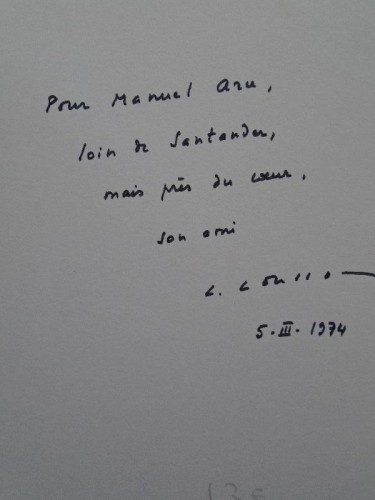 Pour Manuel Aru,
loin de Santander,
mais près du cœur,
son ami
5.III.1974